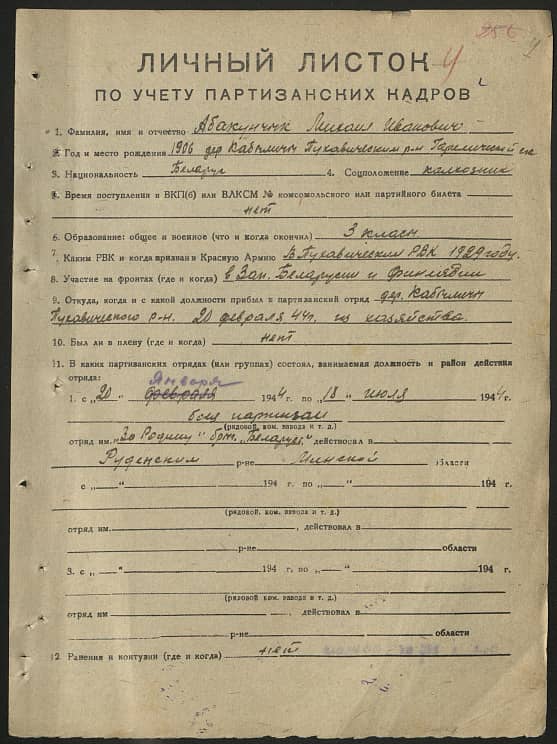 256
4
ЛИЧНЫЙ ЛИСТОК
У
ПО УЧЕТУ ПАРТИЗАНСКИХ КАДРОВ
1. Фамилия, имя и отчество Абакунчик Михаил Иванович
2. Год и место рождения 1906 дер. Пуховическим р-н
3. Национальность Беларус 4. Соцположение калхозник
5. Время поступления в ВКП(б) или ВЛКСМ № комсомольского или партийного билета
нет
6. Образование: общее и военное (что и когда окончил) 3 класн
7. Каким РВК и когда призван в Красную Армию В Пуховическим РВК 1929 году.
8. Участие на фронтах (где и когда) в Зап. Беларусии и Финляндии
9. Откуда, когда и с какой должности прибыл в партизанский отряд дер.
Пуховического р-н. 20 февраля 44г. из хазяйства.
10. Был ли в плену (где и когда) нет
11. В каких партизанских отрядах (или группах) состоял, занимаемая должность и район действия
отряда:
Января
1. с „20“ февраля 1944 г. по „18“ июля 1944 г.
боец партизан
(рядовой. ком. взвода и т. д.)
отряд им. „За Родину“ бриг. „Беларусь“ действовал в
Руденским р-не Минской области
с „ “ 194 г. по „ “ 194 г.
(рядовой. ком. взвода и т. д.)
отряд им. , действовал в
р-не области
3. с „ “ 194 г. по „ “ 194 г.
(рядовой. ком. взвода и т. д.)
отряд им , действовал в
р-не области
12. Ранения и контузии (где и когда) нет